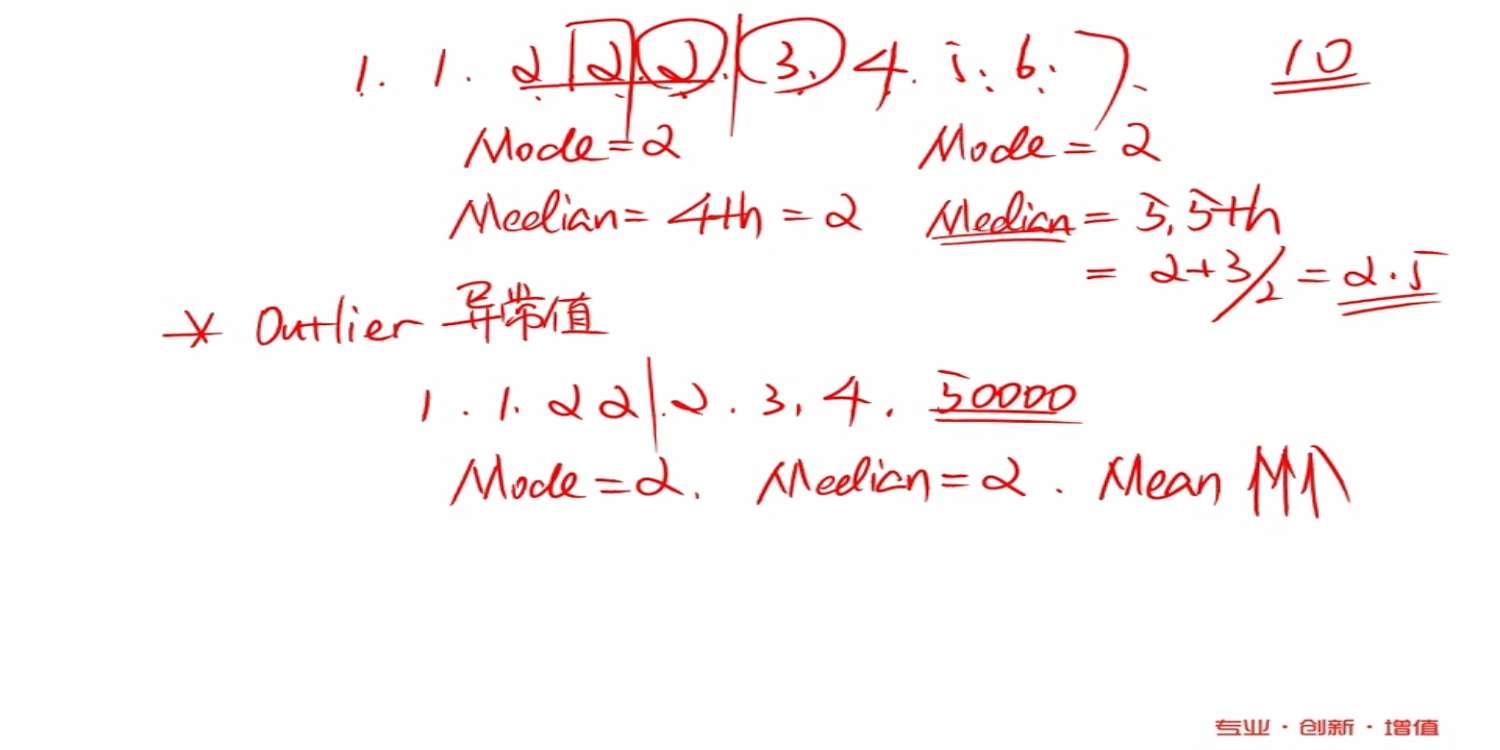 1. 1. 2 2 2. 3. 4. 5. 6. 7. 10
Mode=2 Mode = 2
Median= 4th = 2 Median = 5,5th
= 2+3/2 = 2.5
* Outlier 异常值
1. 1. 2 2 . 2. 3, 4. 50000
Mode=2. Median=2. Mean ↑↑↑
专业·创新·增值